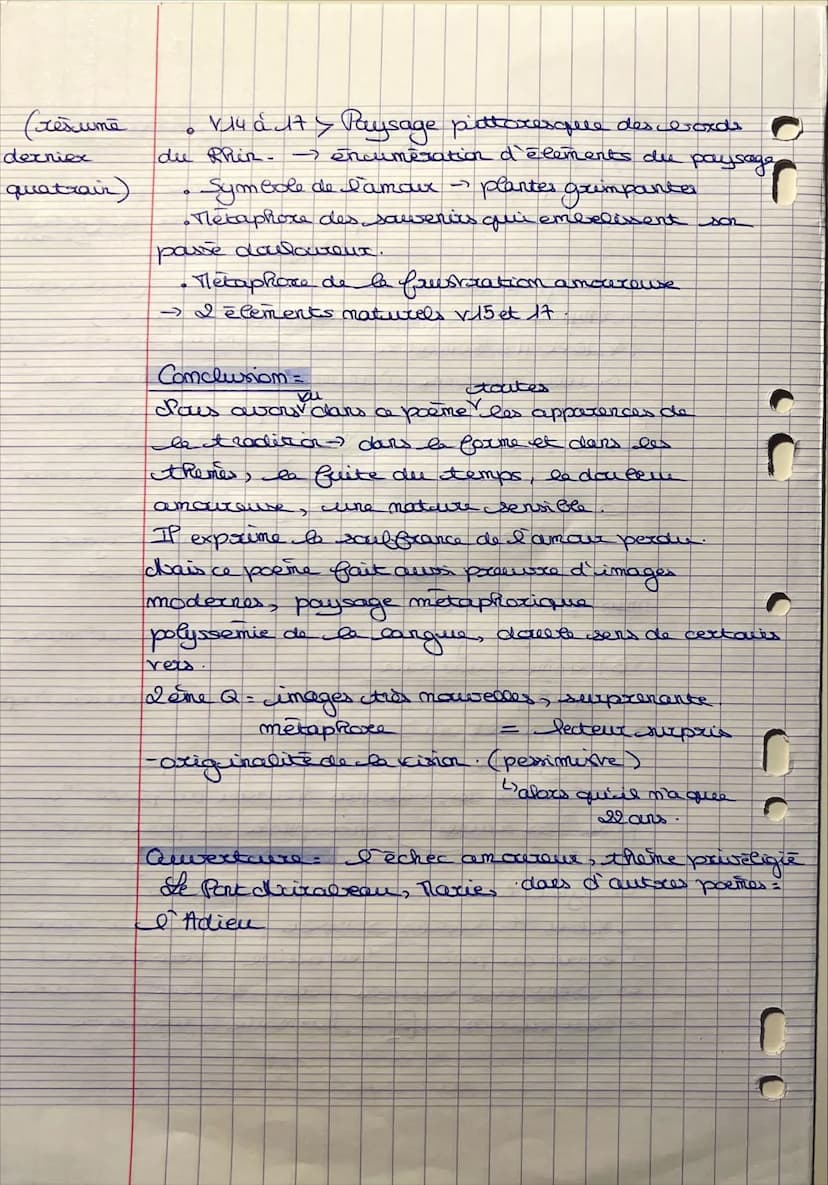 (résumé
dernier
quatrain)
• V14 à 17 > Paysage pittoresque des bords
du Rhin. → énumération d'éléments du paysage
• Symbole de l'amour → plantes grimpantes
• Métaphore des souvenirs qui embelissent son
passé douloureux.
• Métaphore de la frustration amoureuse
→ 2 éléments naturels v15 et 17.
Conclusion =
Nous avons vu dans ce poème toutes les apparences de
la tradition → dans la forme et dans les
thèmes, la fuite du temps, la douleur
amoureuse, une nature sensible.
Il exprime la souffrance de l'amour perdu.
Mais ce poème fait aussi preuve d'images
modernes, paysage métaphorique
polyssémie de la langue, double sens de certains
vers.
2ème Q = images très nouvelles, surprenante
métaphore = lecteur surpris
- originalité de la vision. (pessimiste)
↳ alors qu'il n'a que
22 ans.
Ouverture = l'échec amoureux, thème privélégié
Le Pont Mirabeau, Marie, dans d'autres poèmes =
l'Adieu